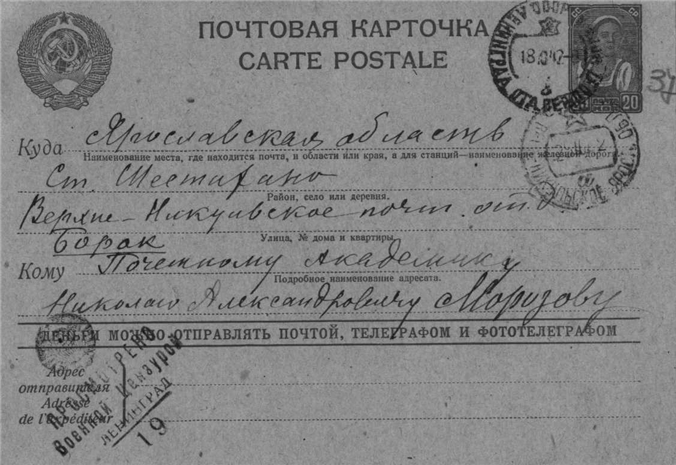 ПОЧТОВАЯ КАРТОЧКА
CARTE POSTALE
18.
42
20
37
Куда Ярославская область
Наименование места, где находится почта, и области или края, а для станций—наименование железной дороги
Ст. Шестихино
Район, село или деревня.
Верхне-Никульское почт. отд.
Улица, № дома и квартиры.
Борок
Кому Почетному Академику
Подробное наименование адресата.
Николаю Александровичу Морозову
ДЕНЬГИ МОЖНО ОТПРАВЛЯТЬ ПОЧТОЙ, ТЕЛЕГРАФОМ И ФОТОТЕЛЕГРАФОМ
Адрес
отправителя
Adresse
de l'expéditeur
ПРОСМОТРЕНО
Военной Цензурой
ЛЕНИНГРАД
19